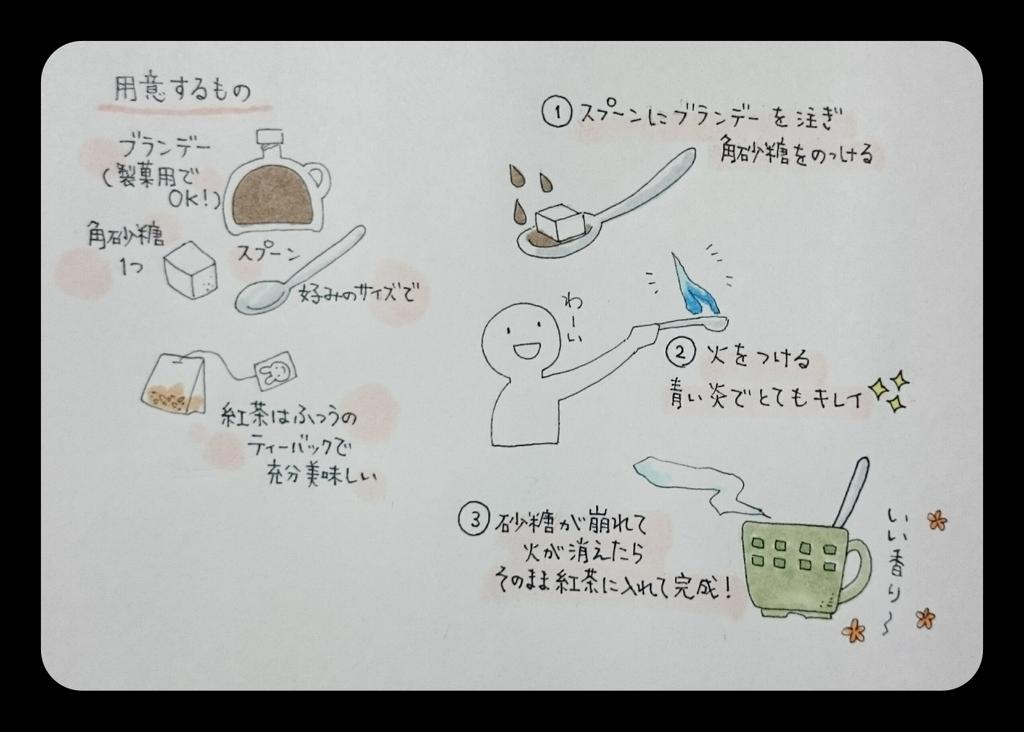 用意するもの
ブランデー
(製菓用で
OK!)
角砂糖
1つ
スプーン
好みのサイズで
紅茶はふつうの
ティーバックで
充分美味しい
① スプーンにブランデーを注ぎ
角砂糖をのっける
わーい
② 火をつける
青い炎でとてもキレイ
③ 砂糖が崩れて
火が消えたら
そのまま紅茶に入れて完成!
いい香り〜